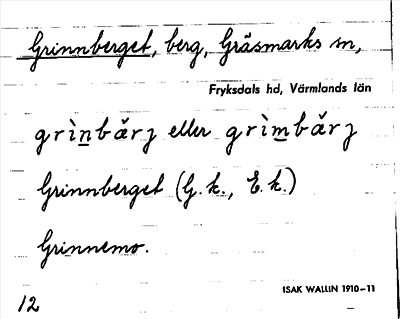 Grinnberget, berg, Gräsmarks sn,
Fryksdals hd, Värmlands län
grìn̲bărj eller grìm̲bărj
Grinnberget (G.k., E.k.)
Grinnemo.
ISAK WALLIN 1910–11
12